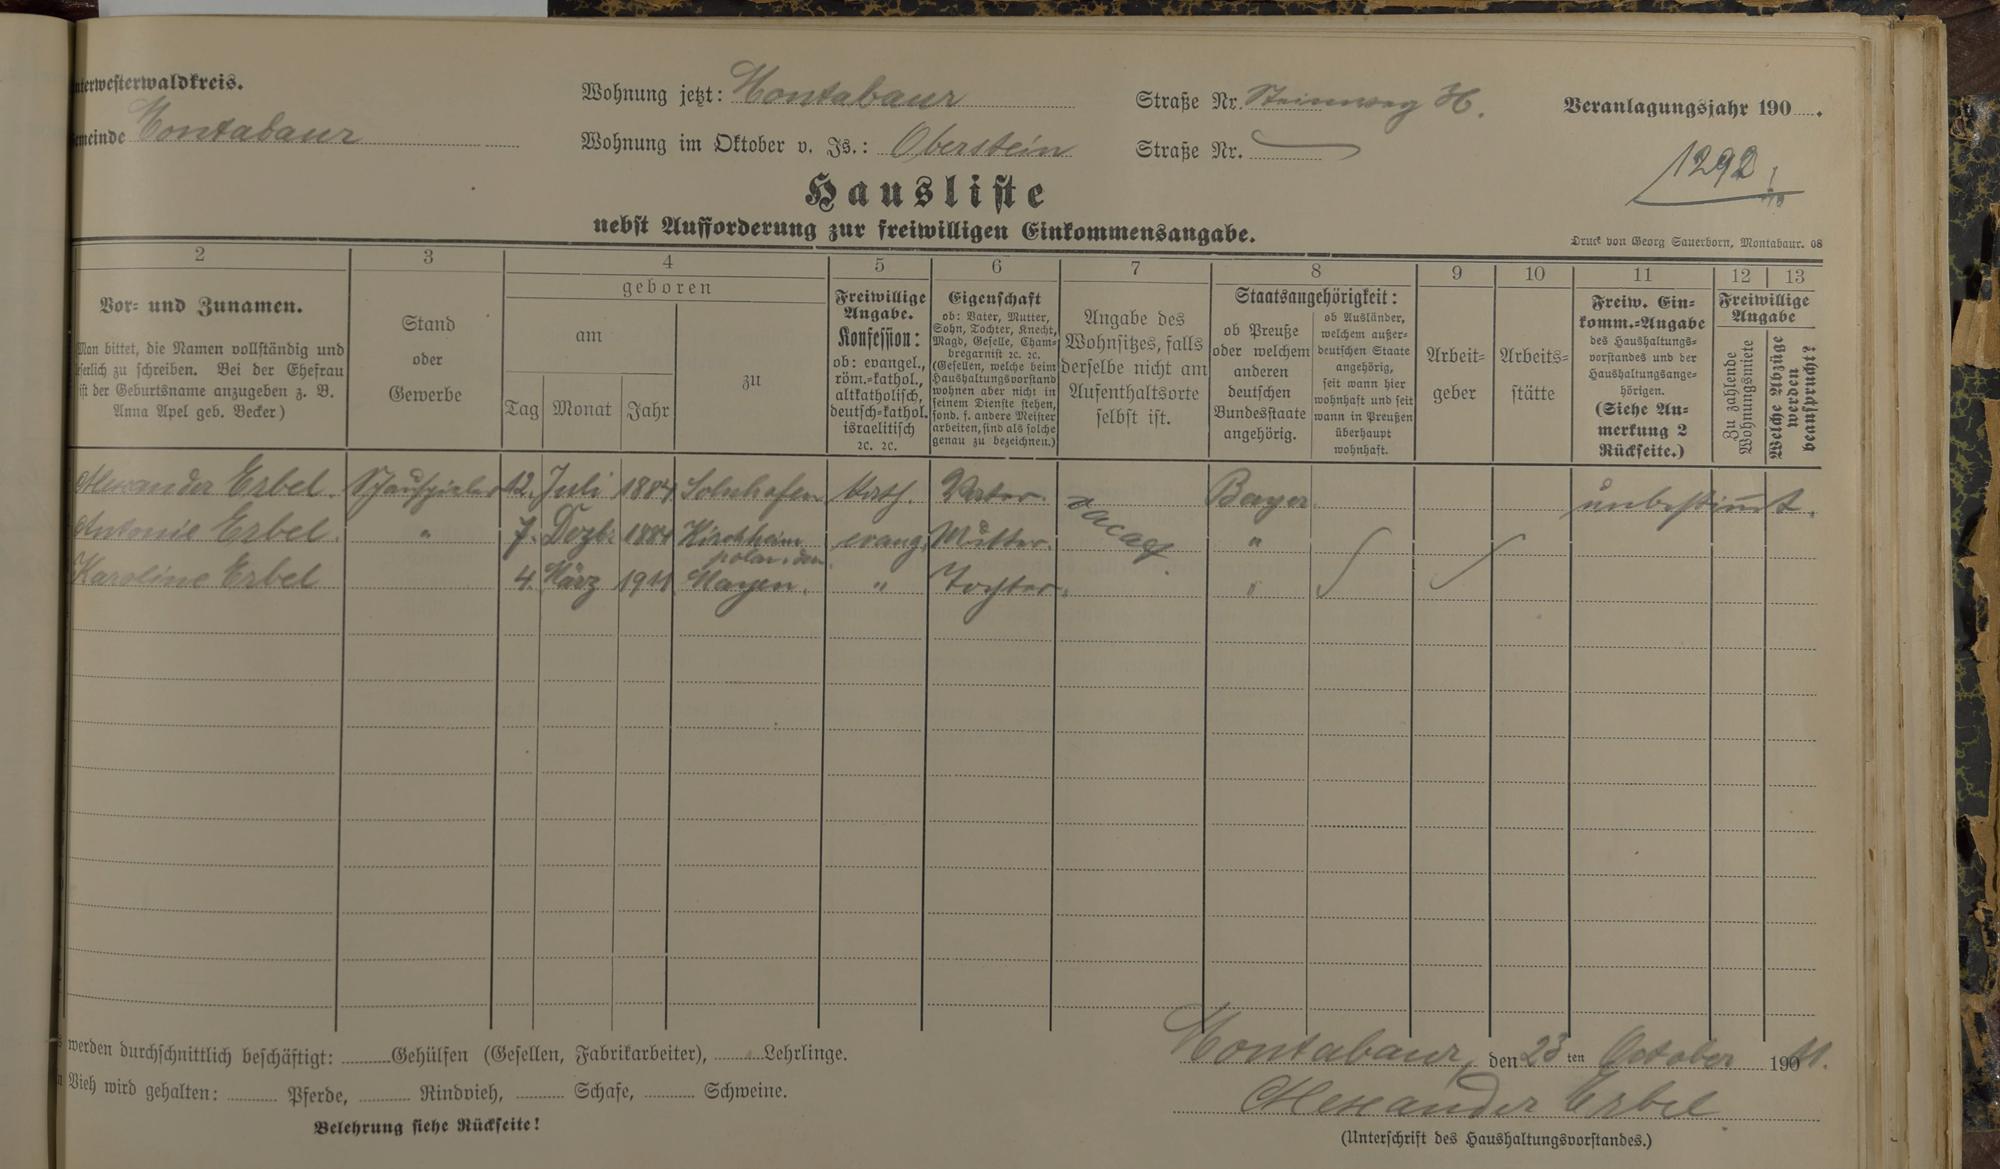 nterwesterwaldkreis.
Wohnung jetzt: Montabaur
Straße Nr. Steinweg H.
Veranlagungsjahr 190 .
emeinde Montabaur
Wohnung im Oktober v. Js.: Oberstein
Straße Nr.
1292
Hausliste
nebst Aufforderung zur freiwilligen Einkommensangabe.
Druck von Georg Sauerborn, Montabaur. 08
2 3 4 5 6 7 8 9 10 11 12 13
Vor- und Zunamen.
Man bittet, die Namen vollständig und
eserlich zu schreiben. Bei der Ehefrau
ist der Geburtsname anzugeben z. B.
Anna Apel geb. Becker)
Stand
oder
Gewerbe
geboren
am
zu
Tag Monat Jahr
Freiwillige
Angabe.
Konfession:
ob: evangel.,
röm.-kathol.,
altkatholisch,
deutsch-kathol.
israelitisch
2c. 2c.
Eigenschaft
ob: Vater, Mutter,
Sohn, Tochter, Knecht,
Magd, Geselle, Cham-
bregarnist 2c. 2c.
(Gesellen, welche beim
Haushaltungsvorstand
wohnen aber nicht in
seinem Dienste stehen,
sond. f. andere Meister
arbeiten, sind als solche
genau zu bezeichnen.)
Angabe des
Wohnsitzes, falls
derselbe nicht am
Aufenthaltsorte
selbst ist.
Staatsangehörigkeit:
ob Preuße
oder welchem
anderen
deutschen
Bundesstaate
angehörig.
ob Ausländer,
welchem außer-
deutschen Staate
angehörig,
seit wann hier
wohnhaft und seit
wann in Preußen
überhaupt
wohnhaft.
Arbeit-
geber
Arbeits-
stätte
Freiw. Ein-
komm.-Angabe
des Haushaltungs-
vorstandes und der
Haushaltungsange-
hörigen.
(Siehe An-
merkung 2
Rückseite.)
Freiwillige
Angabe
Zu zahlende
Wohnungsmiete
Welche Abzüge
werden
beansprucht?
Alexander Erbel. Schauspieler 12. Juli 1884 Solnhofen kath. Vater. Bayer. unbestimmt.
Antonie Erbel. " 7. Dezb. 1884 Kirchheim
bolanden evang. Mutter. "
Karoline Erbel 4. März 1911 Mayen. " Tochter. "
werden durchschnittlich beschäftigt: Gehülfen (Gesellen, Fabrikarbeiter), Lehrlinge.
Vieh wird gehalten: Pferde, Rindvieh, Schafe, Schweine.
Belehrung siehe Rückseite!
Montabaur, den 23 ten October 190 11.
Alexander Erbel
(Unterschrift des Haushaltungsvorstandes.)